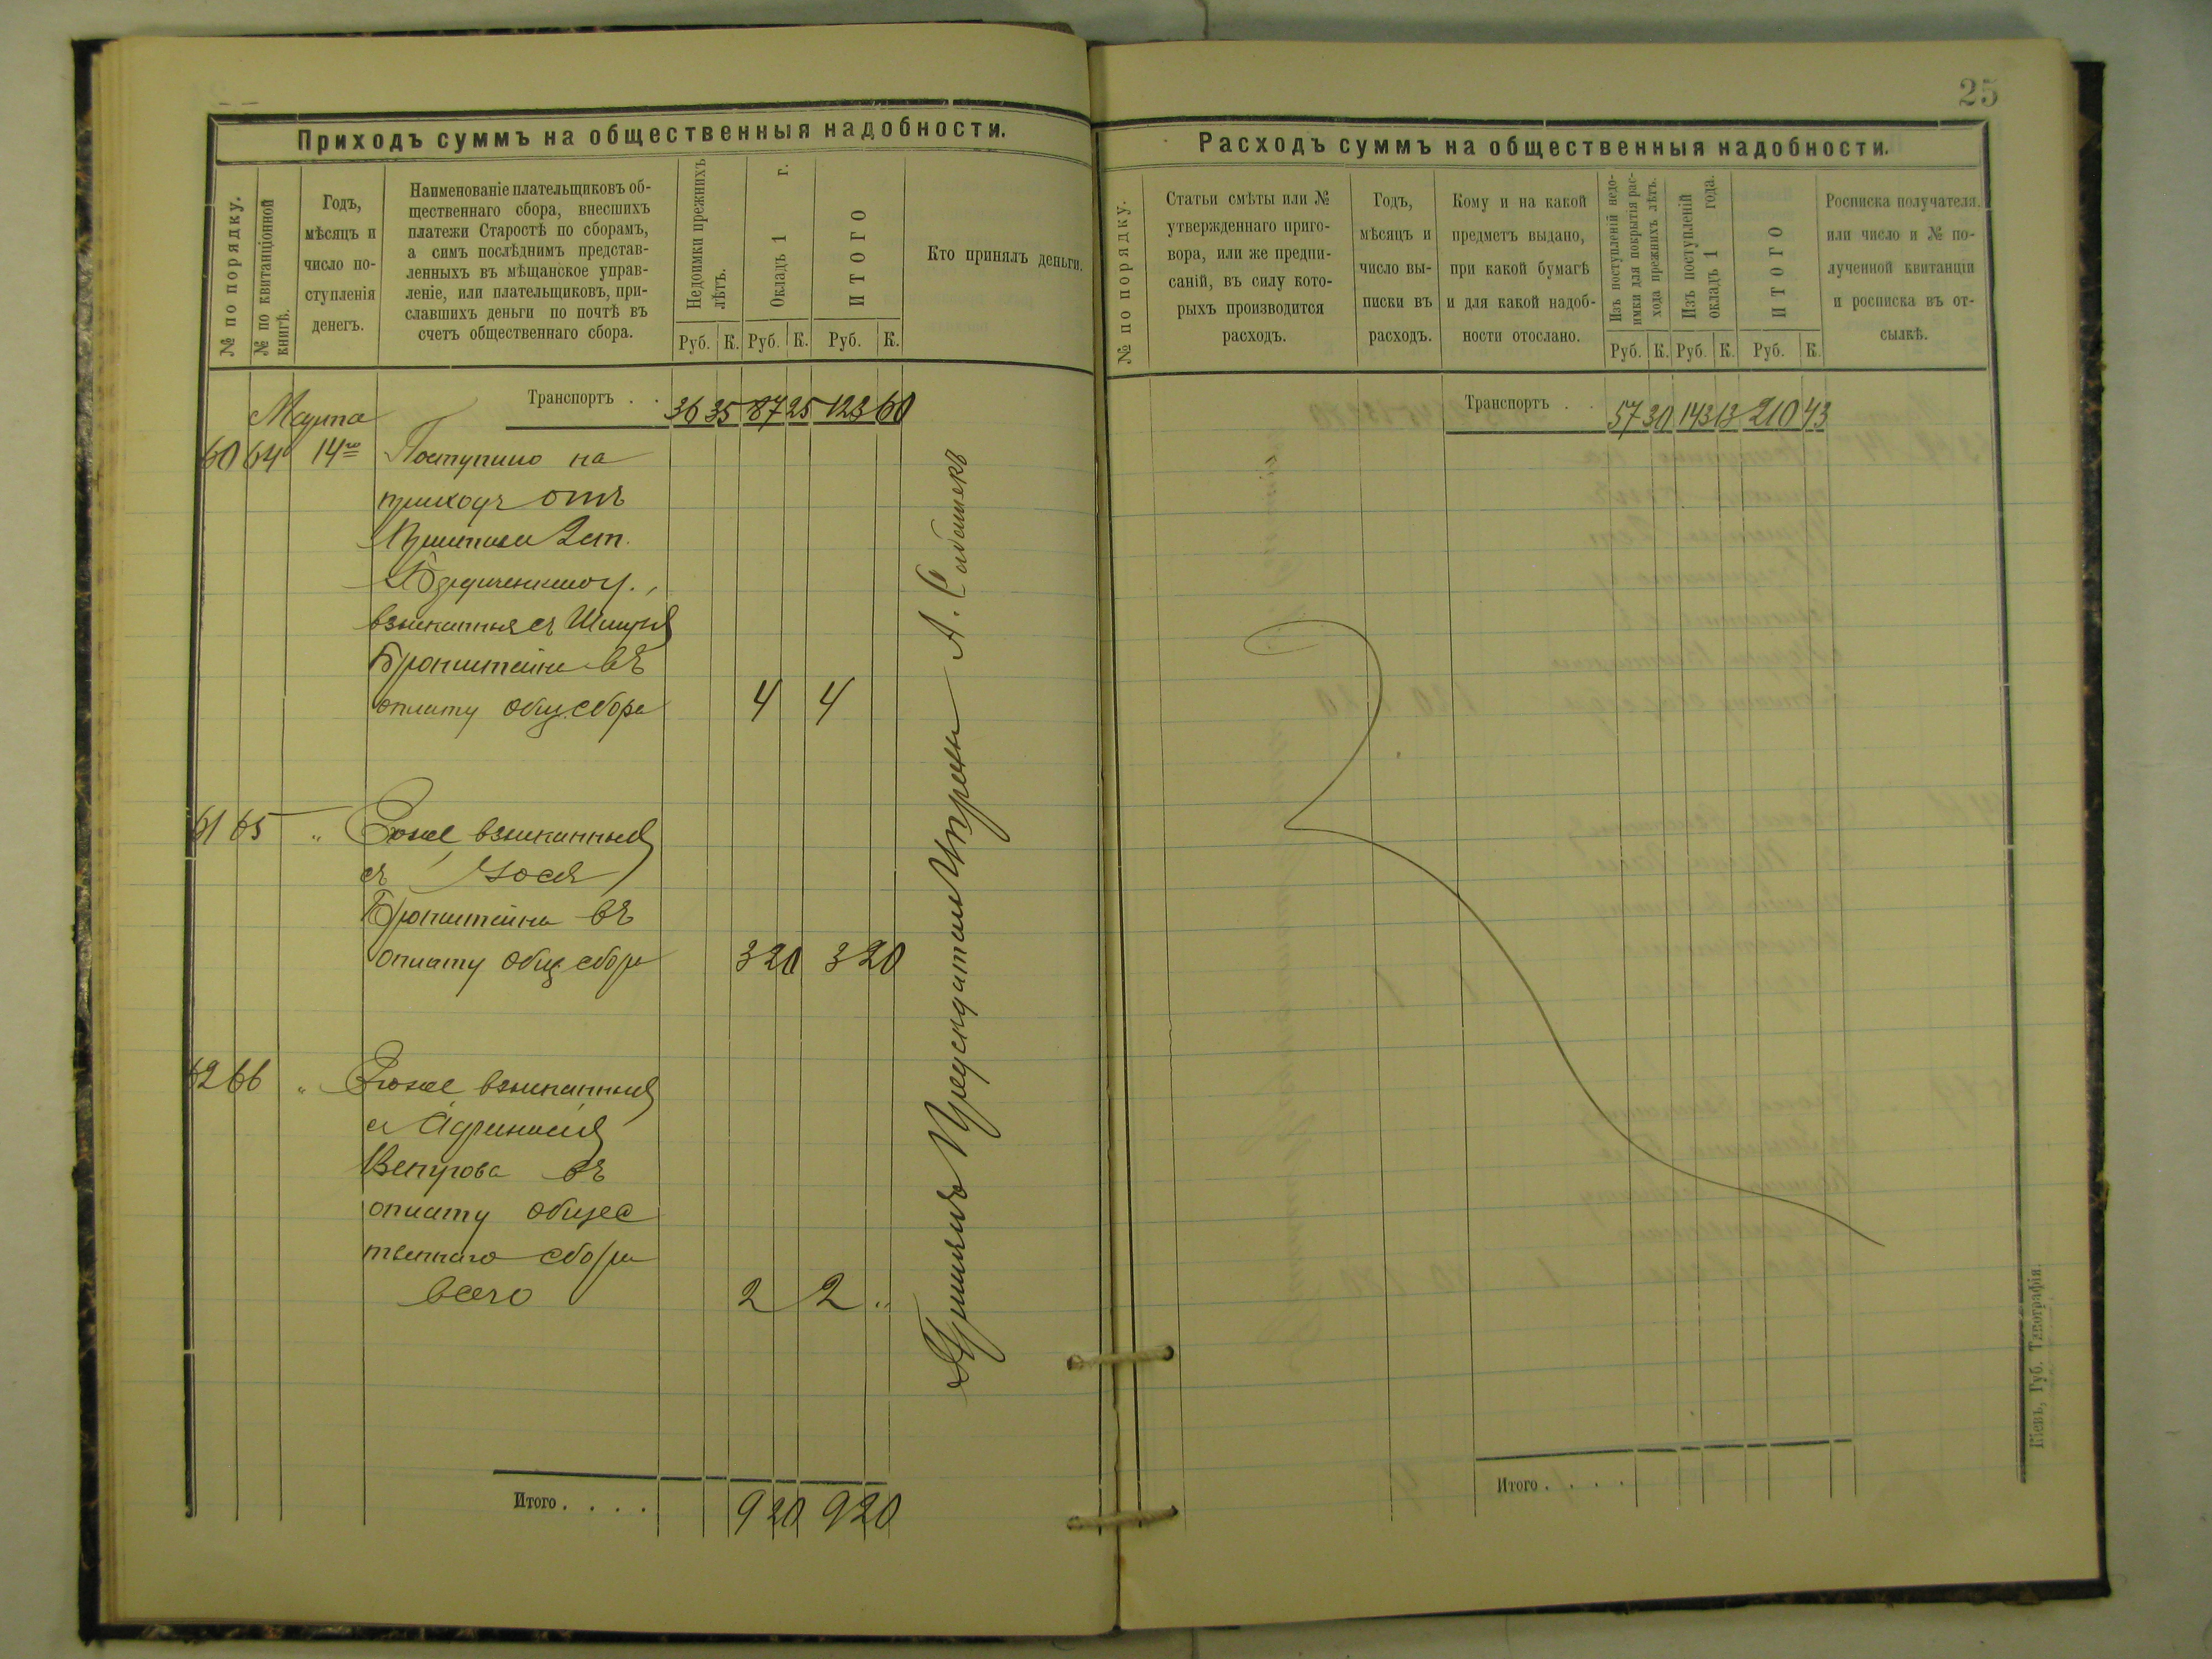 25
Приходъ суммъ на общественныя надобности.
№ по порядку.
№ по квитанціонной
книгѣ.
Годъ,
мѣсяцъ и
число по-
ступленія
денегъ.
Наименованіе плательщиковъ об-
щественнаго сбора, внесшихъ
платежи Старостѣ по сборамъ,
а симъ послѣднимъ представ-
ленныхъ въ мѣщанское управ-
леніе, или плательщиковъ, при-
славшихъ деньги по почтѣ въ
счетъ общественнаго сбора.
Недоимки прежнихъ
лѣтъ.
Окладъ 1 г.
ИТОГО
Кто принялъ деньги.
Руб. К. Руб. К. Руб. К.
Транспортъ . . 36 35 87 25 123 60
Марта
60 64 14го Поступило на
приходъ отъ
взысканныя съ
Бронштейна въ
оплату общ. сбора 4 4
61 65 " Тоже взысканныя
съ Іося
Бронштейна въ
оплату общ сбора 3 20 3 20
62 66 " Тоже взысканныя
съ
Вепрова въ
оплату общес
твеннаго сбора
всего 2 2 "
Итого . . . . 9 20 9 20
Принялъ Предсѣдатель Управы А.
Расходъ суммъ на общественныя надобности.
№ по порядку.
Статьи смѣты или №
утвержденнаго приго-
вора, или же предпи-
саній, въ силу кото-
рыхъ производится
расходъ.
Годъ,
мѣсяцъ и
число вы-
писки въ
расходъ.
Кому и на какой
предметъ выдано,
при какой бумагѣ
и для какой надоб-
ности отослано.
Изъ поступленій недо-
имки для покрытія рас-
хода прежнихъ лѣтъ.
Изъ поступленій
окладъ 1 года.
ИТОГО
Росписка получателя.
или число и № по-
лученной квитанціи
и росписка въ от-
сылкѣ.
Руб. К. Руб. К. Руб. К.
Транспортъ . . 57 30 143 13 210 43
Итого . . . .
Кіевъ, Губ. Типографія.